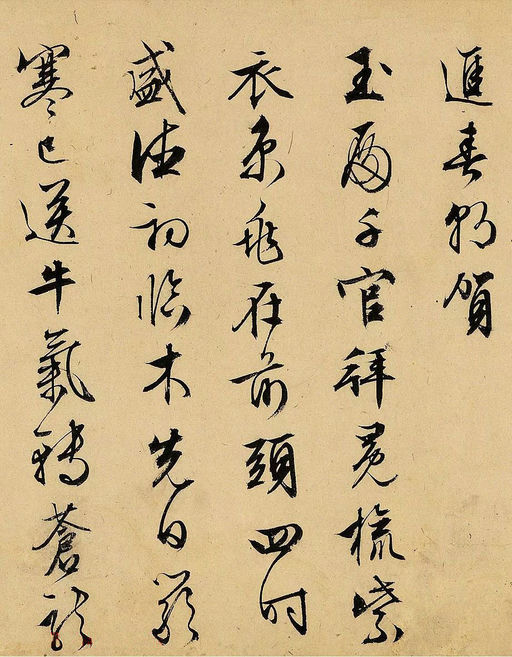 進春朝賀
玉千官拜冕旒紫
衣京兆在前頭四時
盛德初臨木先日嚴
寒已送牛氣轉蒼龍